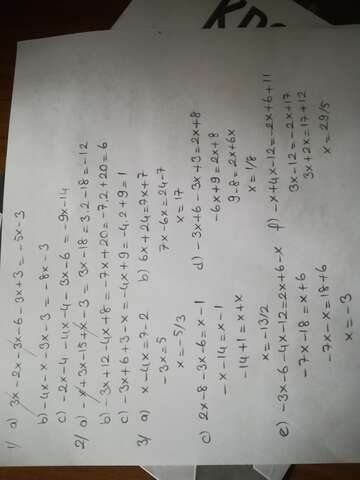 1) a) 3x-2x-3x-6-3x+3 = -5x-3
b) -4x-x-3x-3 = -8x-3
c) -2x-4-4x-4-3x-6 = -9x-14
2) a) -x+3x-15+x-3 = 3x-18 = 3.2-18 = -12
b) -3x+12-4x+8 = -7x+20 = -7.2+20 = 6
c) -3x+6+3-x = -4x+9 = -4.2+9 = 1
3) a) x-4x=7-2 b) 6x+24=7x+7
-3x=5 7x-6x=24-7
x=-5/3 x=17
c) 2x-8-3x-6=x-1 d) -3x+6-3x+3=2x+8
-x-14=x-1 -6x+9=2x+8
-14+1=x+x 9-8=2x+6x
x=-13/2 x=1/8
e) -3x-6-4x-12=2x+6-x f) -x+4x-12=-2x+6+11
-7x-18=x+6 3x-12=-2x+17
7x-x=18+6 3x+2x=17+12
x=-3 x=29/5